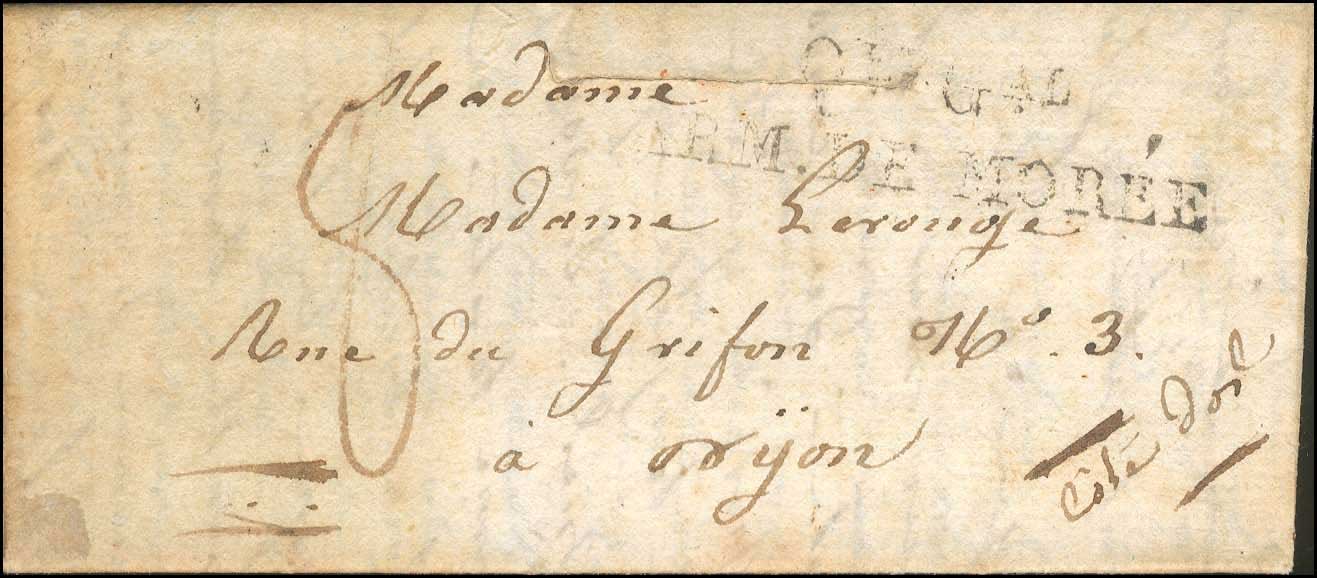 Qr. Gal
ARM. DE MORÉE
Madame
Madame Lerouge
Rue du Grifon No. 3.
à Dijon
Côte Dor